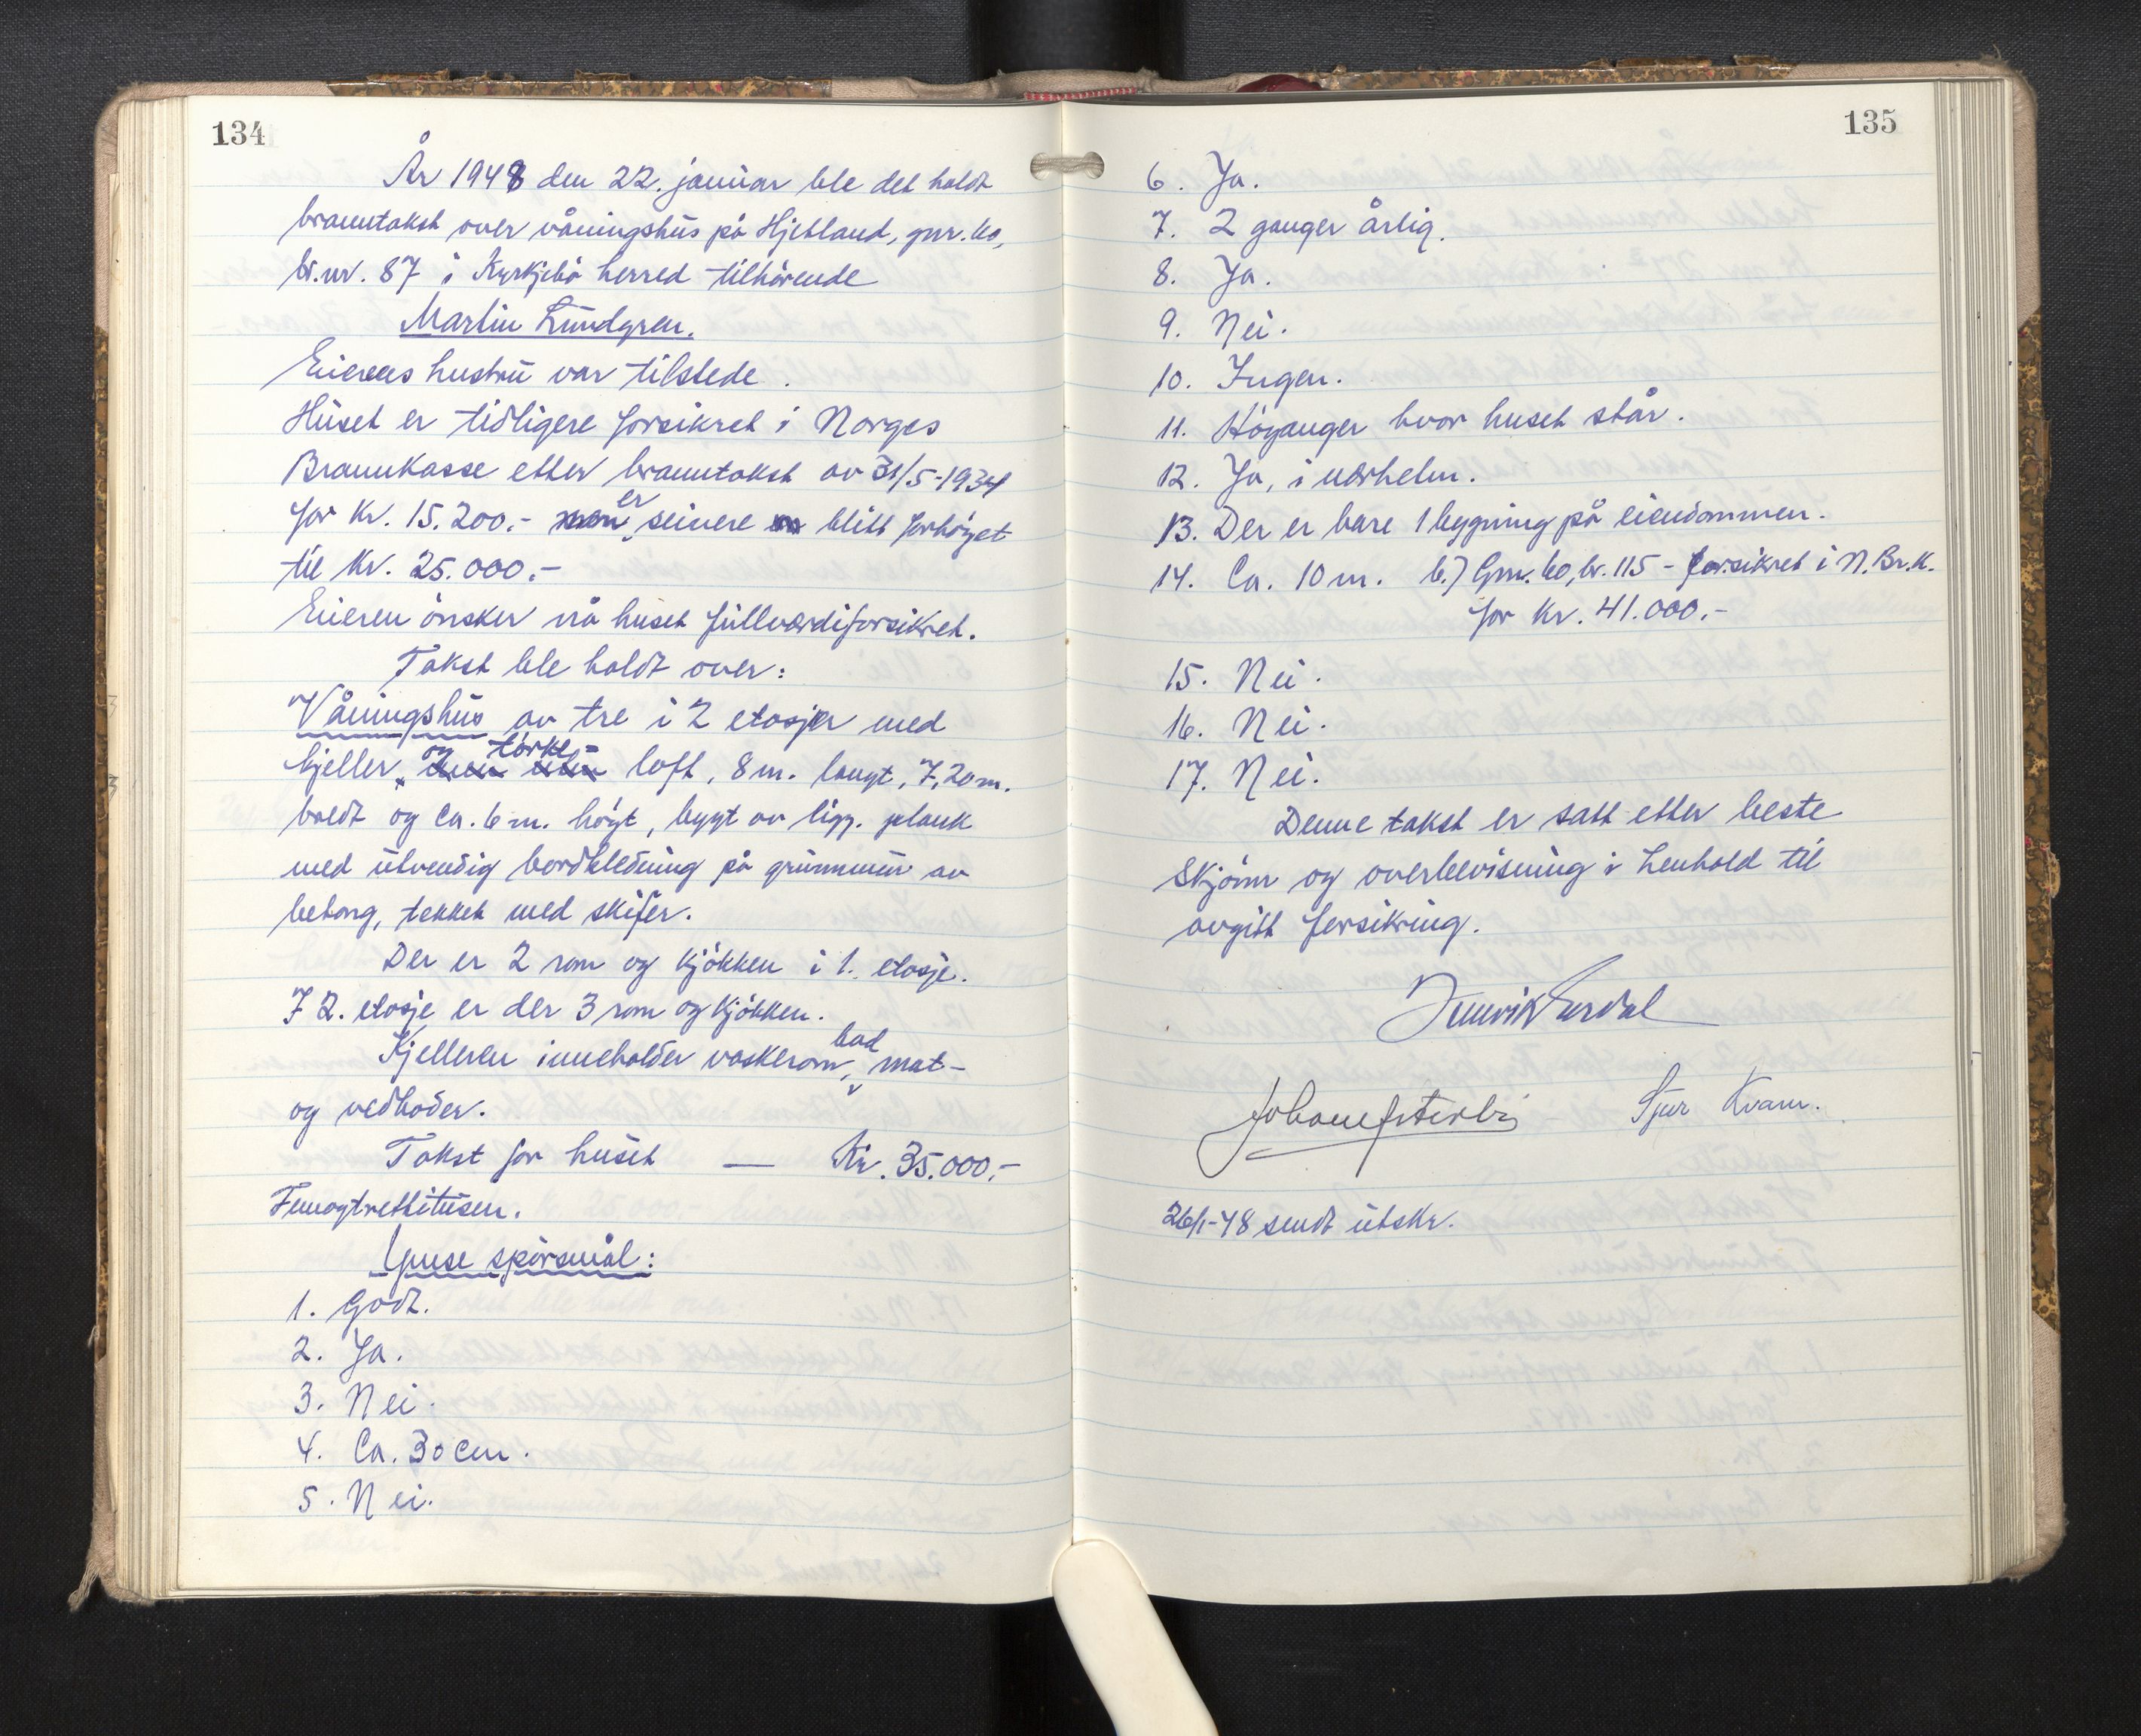 134
År 1948 den 22. januar ble det holdt
branntakst over våningshus på Hjetland, gnr. 60,
br.nr. 87 i Kyrkjebø herred tilhørende
Martin Lundgren.
Eierens hustru var tilstede.
Huset er tidligere forsikret i Norges
Brannkasse etter branntakst av 31/5-1934
for kr. 15.200.- er seinere blitt forhøyet
til kr. 25.000.-
Eieren ønsker nå huset fullverdiforsikret.
Takst ble holdt over:
Våningshus av tre i 2 etasjer med
kjeller og tørke- loft, 8 m. langt, 7,20 m.
bredt og ca. 6 m. høyt, bygt av ligg. plank
med utvendig bordkledning på grunnmur av
betong, tekket med skifer.
Der er 2 rom og kjøkken i 1. etasje.
I 2. etasje er der 3 rom og kjøkken.
Kjelleren inneholder vaskerom, bad mat-
og vedboder.
Takst for huset — Kr. 35.000.-
Femogtrettitusen.
Ymse spørsmål:
1. Godt.
2. Ja.
3. Nei.
4. Ca. 30 cm.
5. Nei.
135
6. Ja.
7. 2 ganger årlig.
8. Ja.
9. Nei.
10. Ingen.
11. Høyanger hvor huset står.
12. Ja, i nærheten.
13. Der er bare 1 bygning på eiendommen.
14. Ca. 10 m. b.) Gnr. 60, br. 115 - forsikret i N.Br.K.
for kr. 41.000.-
15. Nei.
16. Nei.
17. Nei.
Denne takst er satt etter beste
skjønn og overbevisning i henhold til
avgitt forsikring.
Sjur Kvam.
26/1-48 sendt utskr.